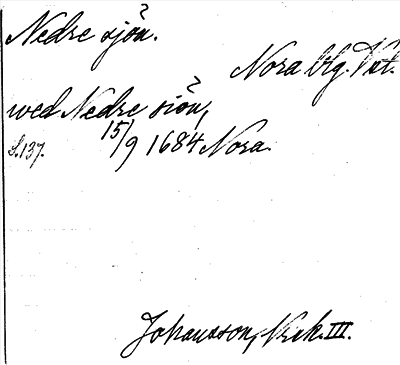 Nedre sjön.
Nora btg. Vstm.
wed Nedre siön,
s. 137. 15/9 1684 Nora.
Johansson, Nrk. III.